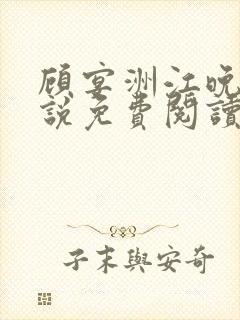 顾宴洲江晚
說免費閱讀
子末與安奇